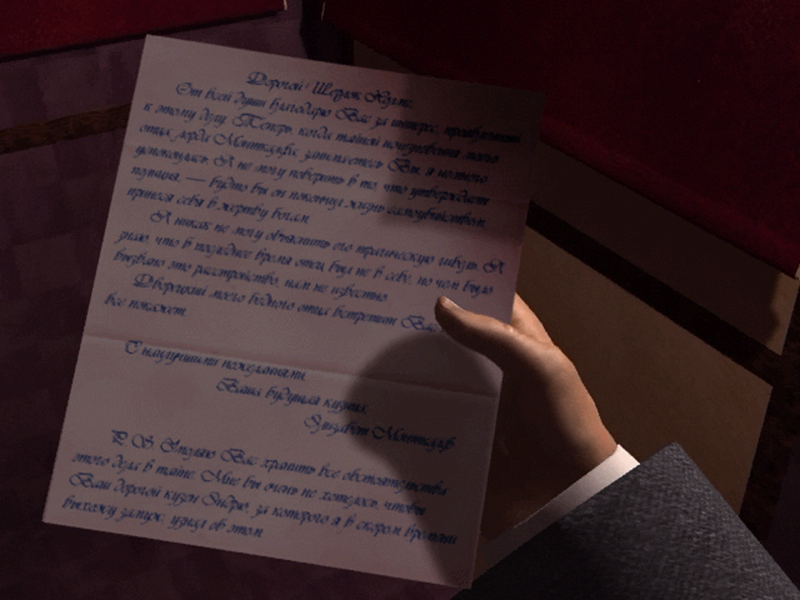 Дорогой Шерлок Холмс,
От всей души благодарю Вас за интерес, проявленный
к этому делу. Теперь, когда тайной исчезновения моего
отца, лорда Монткальфа, занимаетесь Вы, я немного
успокоилась. Я не могу поверить в то, что утверждает
полиция, — будто бы он покончил жизнь самоубийством,
принеся себя в жертву богам.
Я никак не могу объяснить его трагическую гибель. Я
знаю, что в последнее время отец был не в себе, но чем было
вызвано это расстройство, нам не известно.
Дворецкий моего бедного отца встретит Вас
все покажет.
С наилучшими пожеланиями,
Ваша будущая кузина,
Элизабет Монткальф
P. S. Умоляю Вас хранить все обстоятельства
этого дела в тайне. Мне бы очень не хотелось, чтобы
Ваш дорогой кузен Эндрю, за которого я в скором времени
выхожу замуж, узнал об этом.